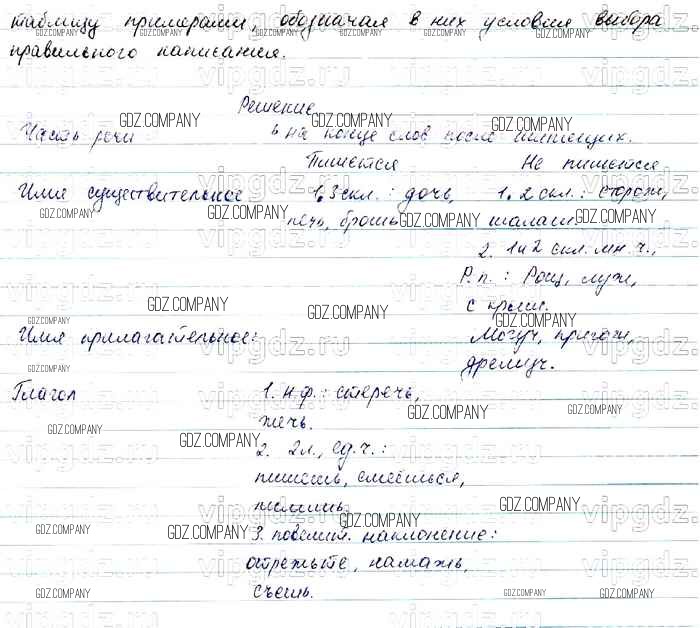 таблицу примерами, обозначая в них условия выбора
правильного написания.
Решение
Часть речи ь на конце слов после шипящих.
Пишется Не пишется
Имя существительное 1. 3 скл.: дочь, 1. 2 скл.: сторож,
печь, брошь шалаш.
2. 1 и 2 скл. мн. ч.,
Р.п.: Рощ, луж,
с крыш.
Имя прилагательное: Могуч, пригож,
дремуч.
Глагол 1. н.ф.: стеречь,
печь.
2. 2 л., ед.ч.:
пишешь, смеёшься,
пилишь.
3. повелит. наклонение:
отрежьте, намажь,
съешь.
GDZ.COMPANY
vipgdz.ru